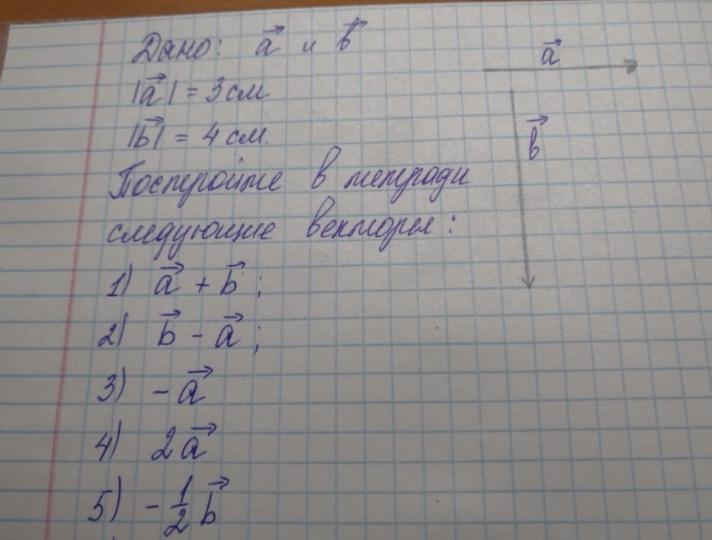 Дано: a⃗ и b⃗
|a⃗| = 3 см
|b⃗| = 4 см.
Постройте в тетради
следующие векторы:
1) a⃗ + b⃗ ;
2) b⃗ - a⃗ ;
3) - a⃗
4) 2a⃗
5) - 1/2 b⃗
a⃗
b⃗